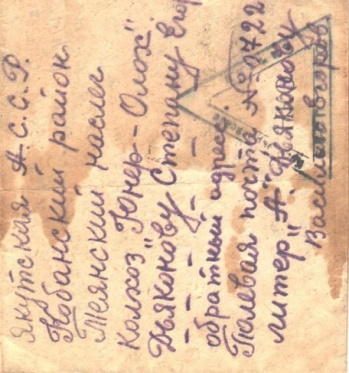 Якутская А.С.С.Р.
Кобанский район
Меянский наслег
колхоз "Юнер-Олох"
Дьяконову Степану Егор
обратный адрес:
Полевая почта № 0722
литер "А" Дьяконову